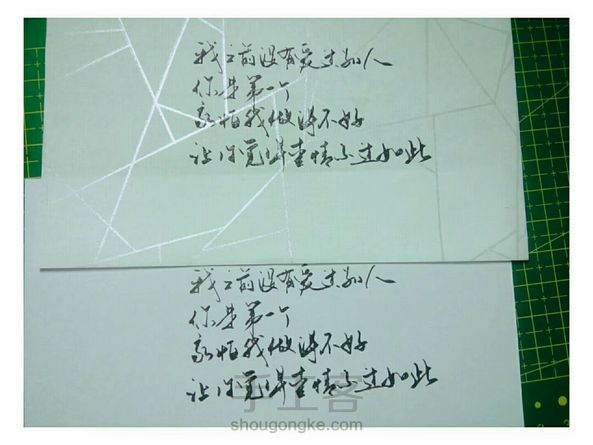 我之前没有爱过别人
你是第一个
我怕我做得不好
让你觉得爱情不过如此
我之前没有爱过别人
你是第一个
我怕我做得不好
让你觉得爱情不过如此
手工客
shougongke.com